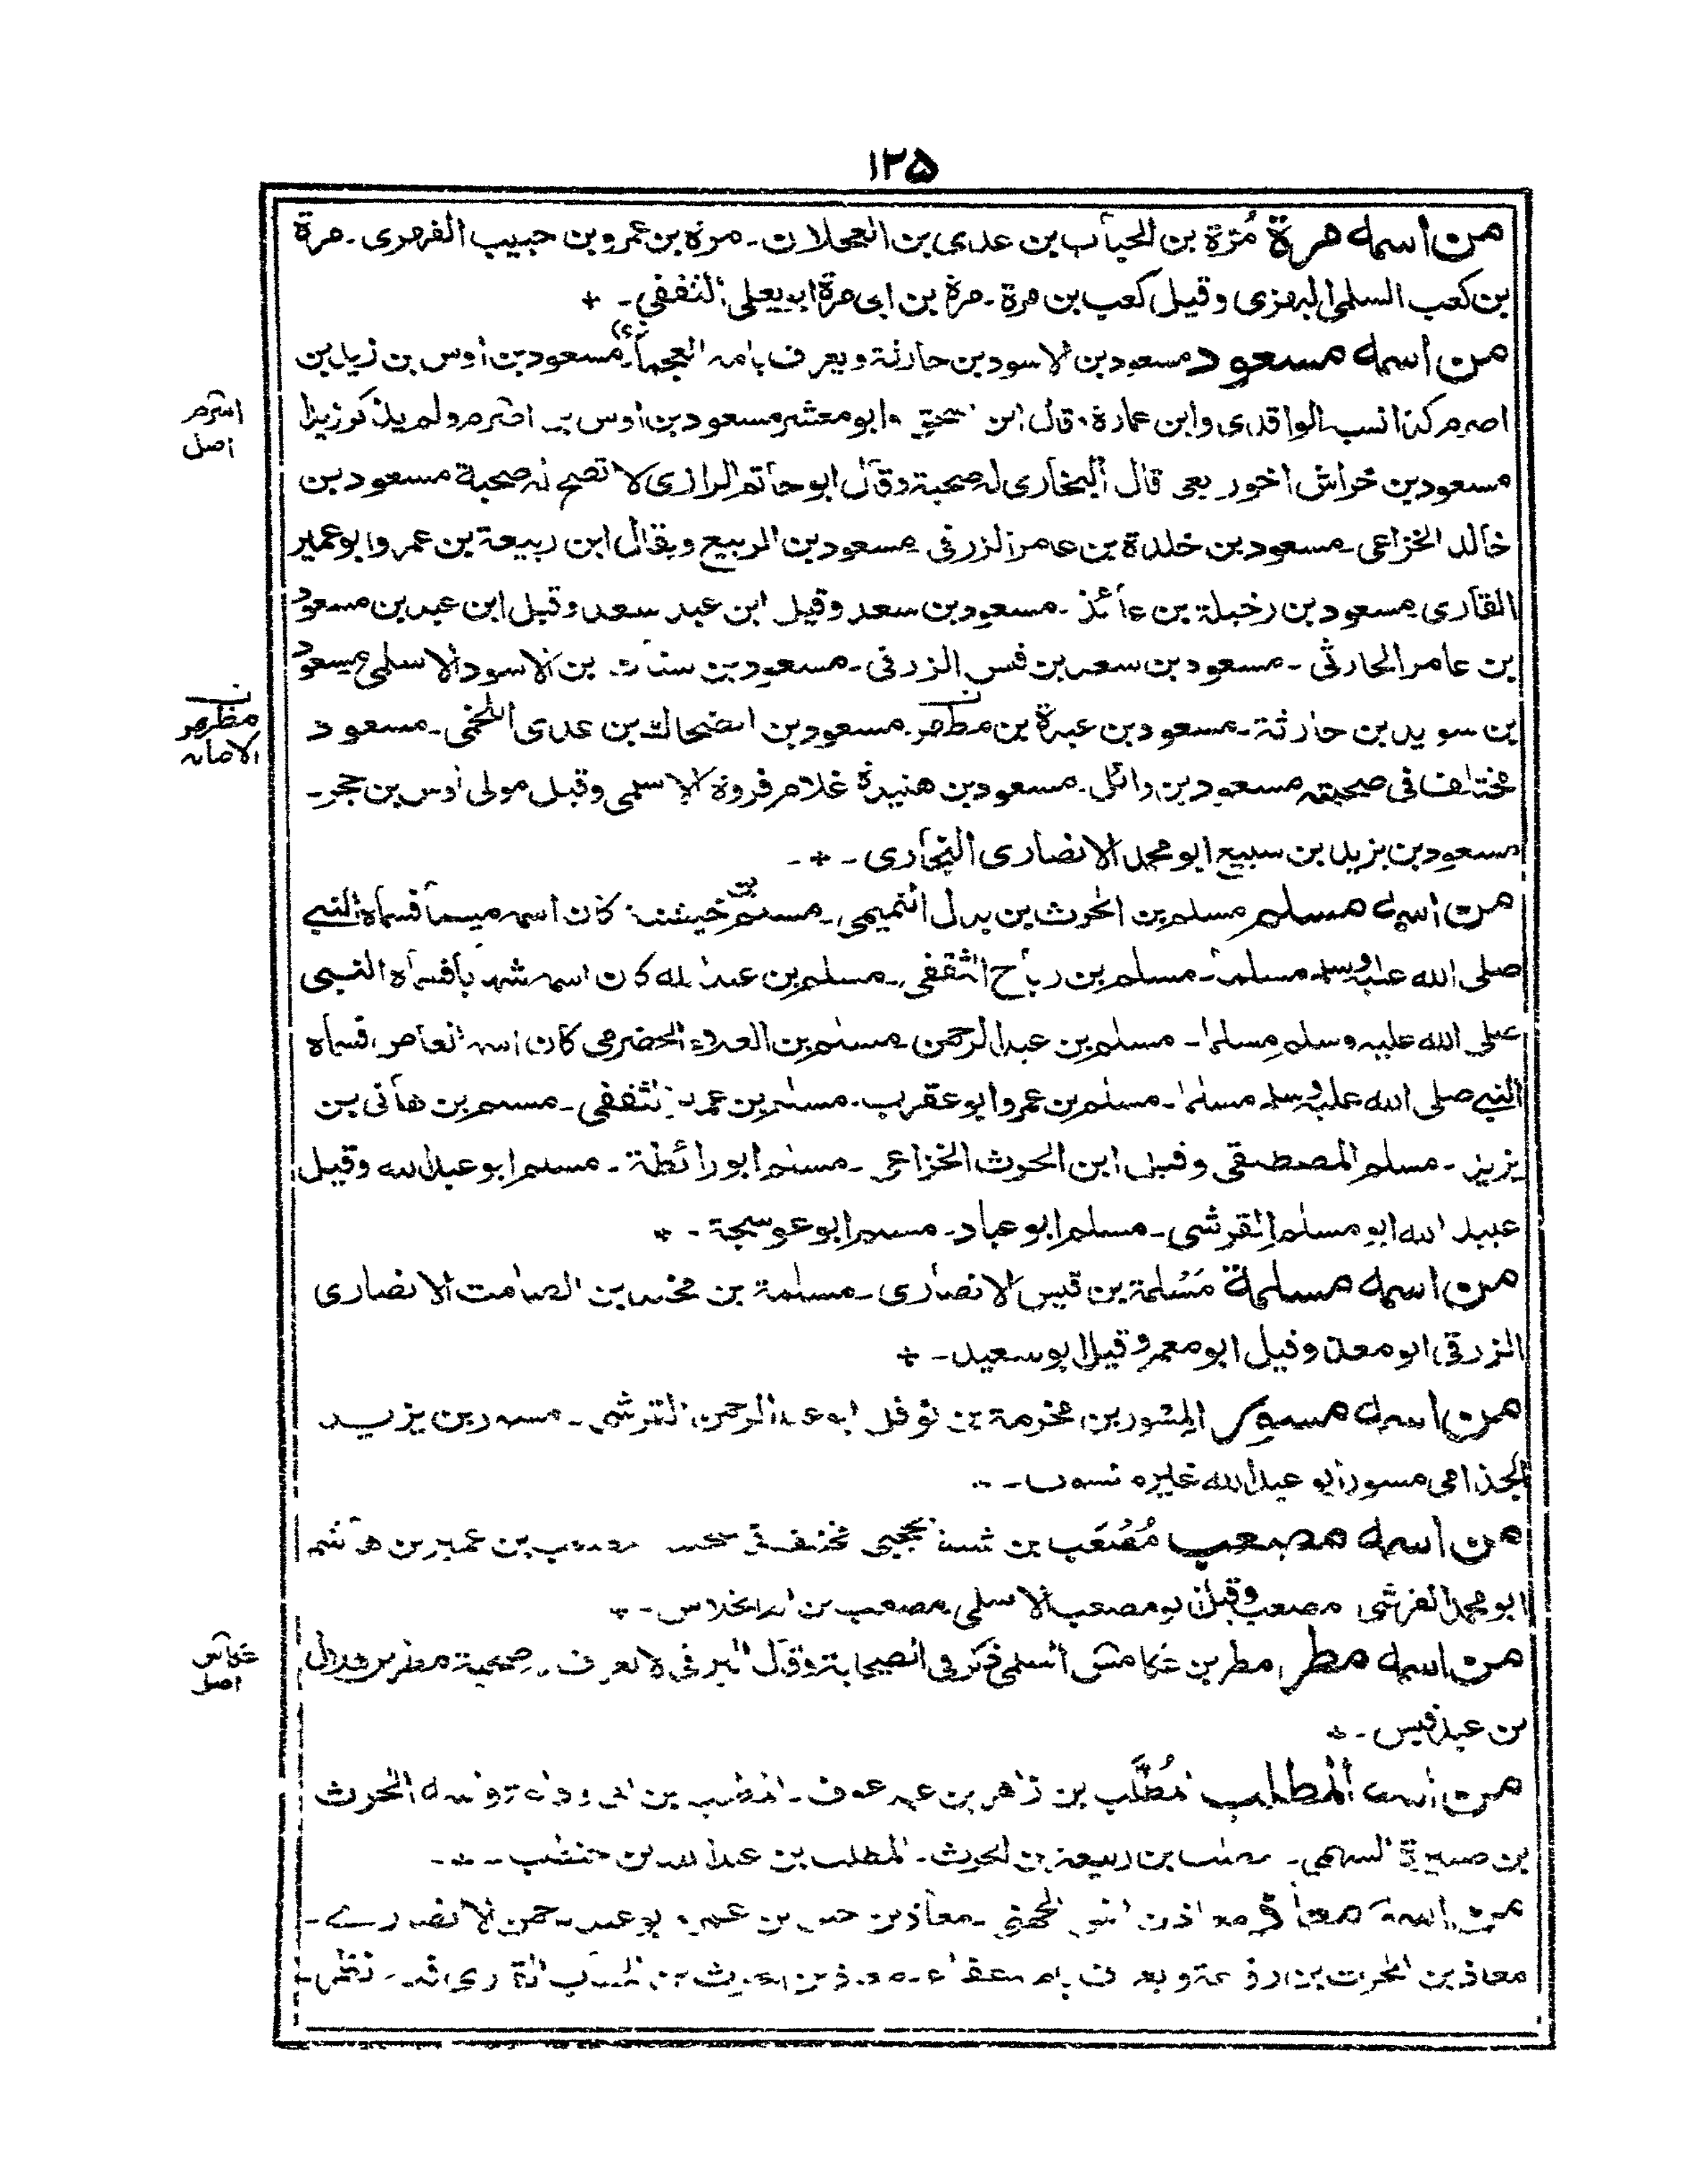 ١٢٥
من اسمه مرة مُرّة بن الحباب بن عدى بن العجلان ـ مرة بن عمرو بن حبيب الفهرى ـ مرة
بن كعب السلمى البهزى وقيل كعب بن مرة ـ مرة بن ابى مرة ابو يعلى الثقفى ـ
من اسمه مسعود مسعود بن الاسود بن حارثة ويعرف بامه العجماء مسعود بن اوس بن زيد بن
اصرم كذا نسب الواقدى وابن عمارة وقال ابن اسحق وابو معشر مسعود بن اوس بن اصرم ولم يذكر زيدا
اصرم
اصل
مسعود بن خراش اخو ربعى قال البخارى له صحبة وقال ابو حاتم الرازى لا تصح له صحبة مسعود بن
خالد الخزاعى ـ مسعود بن خلدة بن عامر الزرقى مسعود بن الربيع ويقال ابن ربيعة بن عمرو ابو عمير
القارى مسعود بن رخيلة بن عائذ ـ مسعود بن سعد وقيل ابن عبد سعد وقيل ابن عبد بن مسعود
بن عامر الحارثى ـ مسعود بن سعد بن قيس الزرقى ـ مسعود بن سنان بن الاسود الاسلمى مسعود
بن سويد بن حارثة ـ مسعود بن عبدة بن مظهر ـ مسعود بن الضحاك بن عدى اللخمى ـ مسعود
مظهر
الاصابه
مختلف فى صحبته مسعود بن وائل ـ مسعود بن هنيدة غلام فروة الاسلمى وقيل مولى اوس بن حجر ـ
مسعود بن يزيد بن سبيع ابو محمد الانصارى النجارى ـ
من اسمه مسلم مسلم بن الحرث بن بدل التميمى ـ مسلم بن خيشنة كان اسمه ميسما فسماه النبى
صلى الله عليه وسلم مسلما ـ مسلم بن رباح الثقفى ـ مسلم بن عبد الله كان اسمه شهابا فسماه النبى
صلى الله عليه وسلم مسلما ـ مسلم بن عبد الرحمن ـ مسلم بن العلاء الحضرمى كان اسمه العاص فسماه
النبى صلى الله عليه وسلم مسلما ـ مسلم بن عمرو ابو عقرب ـ مسلم بن عمير الثقفى ـ مسلم بن هانى بن
يزيد ـ مسلم المصطلقى وقيل ابن الحرث الخزاعى ـ مسلم ابو رائطة ـ مسلم ابو عبد الله وقيل
عبيد الله ابو مسلم القرشى ـ مسلم ابو عباد ـ مسلم ابو عوسجة ـ
من اسمه مسلمة مَسْلمة بن قيس الانصارى ـ مسلمة بن مخلد بن الصامت الانصارى
الزرقى ابو معن وقيل ابو معمر وقيل ابو سعيد ـ
من اسمه مسور المسور بن مخرمة بن نوفل ابو عبد الرحمن القرشى ـ مسور بن يزيد
الجذامى مسور ابو عبد الله غيره منسوب ـ
من اسمه مصعب مُصْعَب بن شيبة الحجبى مختلف فى صحبته مصعب بن عمير بن هاشم
ابو محمد القرشى مصعب وقيل ابو مصعب الاسلمى مصعب بن ام الجلاس ـ
من اسمه مطر مطر بن عكامس السلمى ذكر فى الصحابة وقال البرقى لا تعرف له صحبة مطر بن هلال
عكاس
اصل
بن عبد قيس ـ
من اسمه المطلب المُطَّلب بن ازهر بن عبد عوف ـ المطلب بن ابى وداعة واسمه الحرث
بن صبيرة السهمى ـ مطلب بن ربيعة بن الحرث ـ المطلب بن عبد الله بن حنطب ـ
من اسمه معاذ معاذ بن انس الجهنى ـ معاذ بن جبل بن عمرو ابو عبد الرحمن الانصارى ـ
معاذ بن الحرث بن رفاعة ويعرف بابن عفراء ـ معاذ بن الحرث بن الحباب القارى